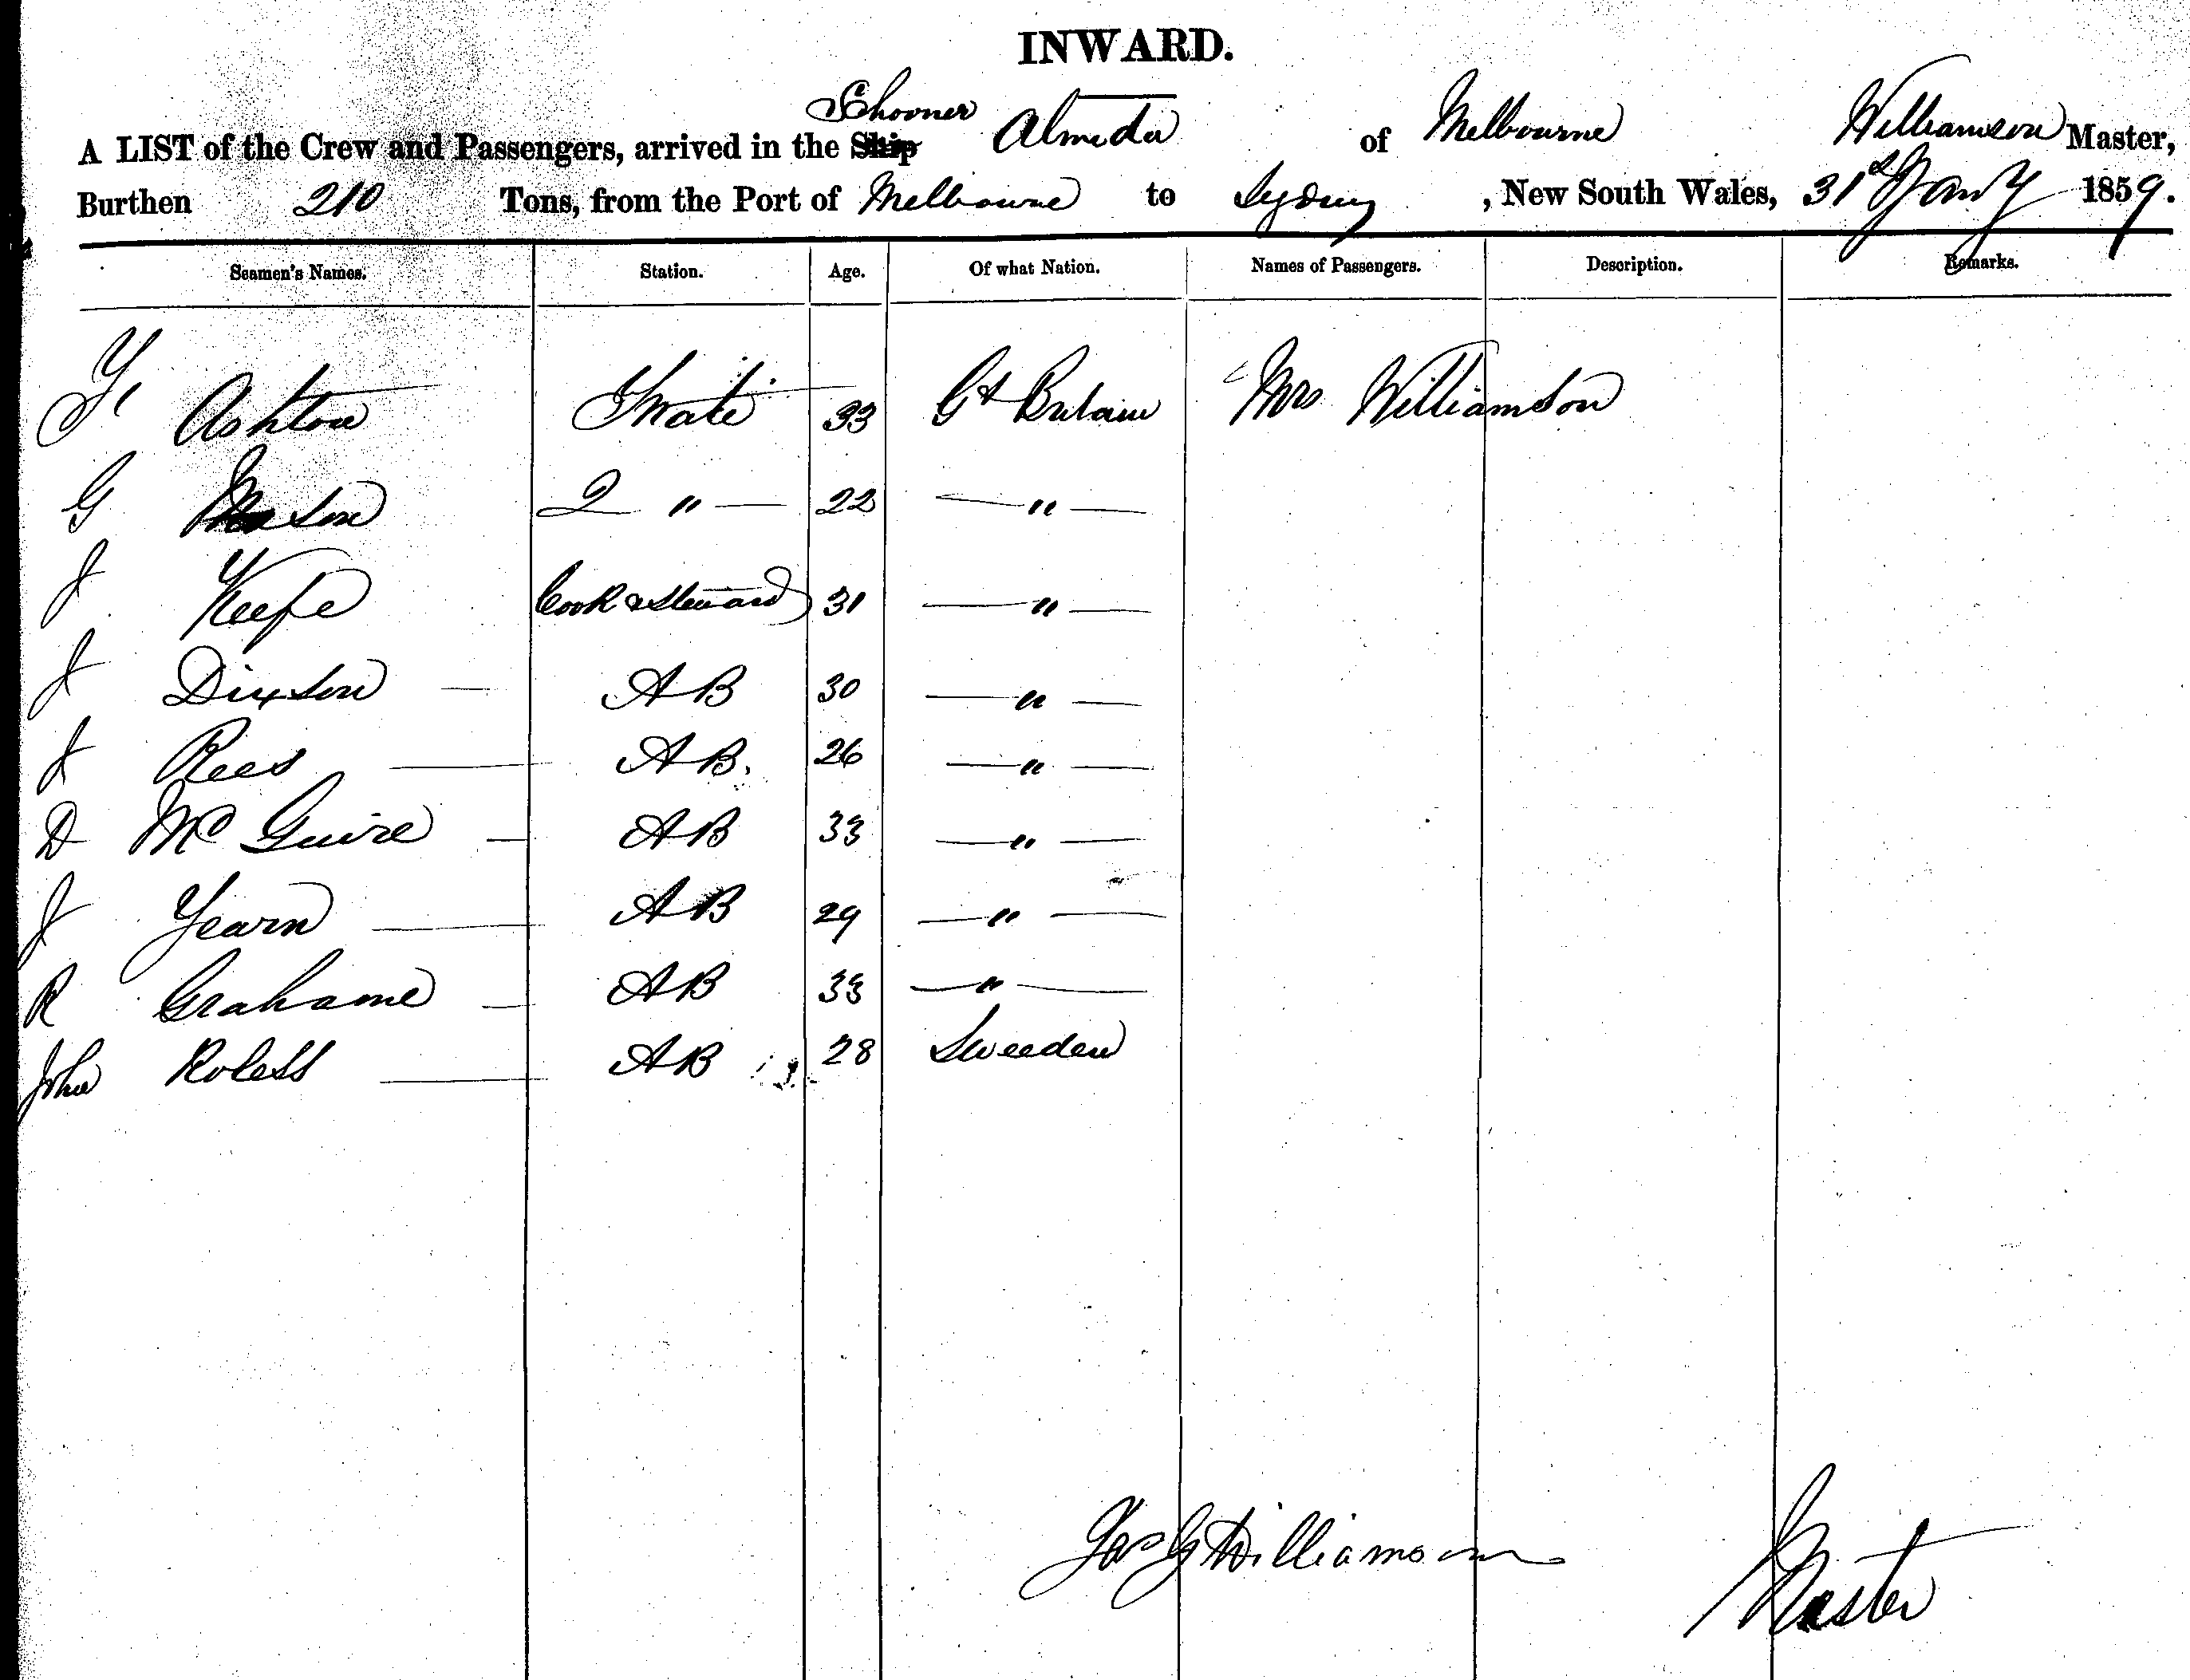 INWARD.
Schooner
A LIST of the Crew and Passengers, arrived in the Ship Almeda of Melbourne Williamson Master,
Burthen 210 Tons, from the Port of Melbourne to Sydney , New South Wales, 31st Jany 1859.
Seamen's Names. Station. Age. Of what Nation. Names of Passengers. Description. Remarks.
Ashton Mate 33 Gt Britain Mrs Williamson
G Mason 2 " — 22 — " —
J Keefe Cook & Steward 31 — " —
J Dixson — AB 30 — " —
J Rees — AB. 26 — " —
D McGuire — AB 33 — " —
J Yearn — AB 29 — " —
R Grahame — AB 33 — " —
John Roless — AB 28 Sweeden
Jas G Williamson Master